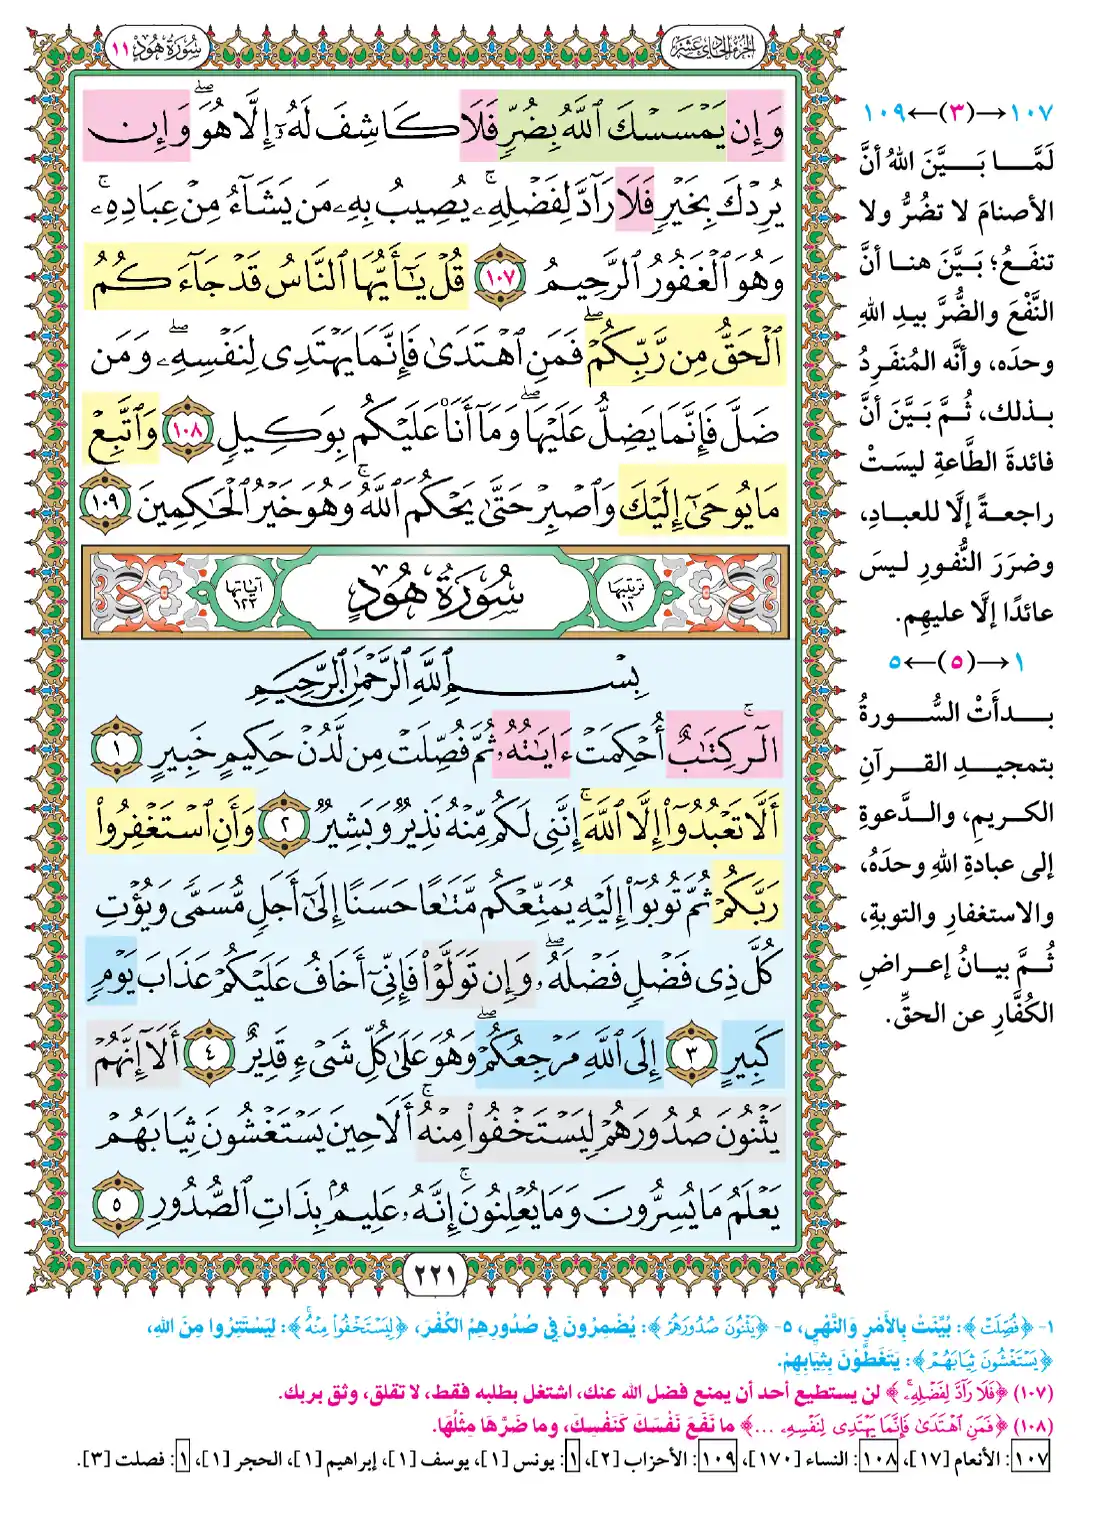 الجزء الحادي عشر
سورة هود ١١
وَإِن يَمْسَسْكَ ٱللَّهُ بِضُرٍّ فَلَا كَاشِفَ لَهُۥٓ إِلَّا هُوَ ۖ وَإِن
يُرِدْكَ بِخَيْرٍ فَلَا رَآدَّ لِفَضْلِهِۦ ۚ يُصِيبُ بِهِۦ مَن يَشَآءُ مِنْ عِبَادِهِۦ ۚ
وَهُوَ ٱلْغَفُورُ ٱلرَّحِيمُ ١٠٧ قُلْ يَـٰٓأَيُّهَا ٱلنَّاسُ قَدْ جَآءَكُمُ
ٱلْحَقُّ مِن رَّبِّكُمْ ۖ فَمَنِ ٱهْتَدَىٰ فَإِنَّمَا يَهْتَدِى لِنَفْسِهِۦ ۖ وَمَن
ضَلَّ فَإِنَّمَا يَضِلُّ عَلَيْهَا ۖ وَمَآ أَنَا۠ عَلَيْكُم بِوَكِيلٍ ١٠٨ وَٱتَّبِعْ
مَا يُوحَىٰٓ إِلَيْكَ وَٱصْبِرْ حَتَّىٰ يَحْكُمَ ٱللَّهُ ۚ وَهُوَ خَيْرُ ٱلْحَـٰكِمِينَ ١٠٩
ترتيبها ١١
سُورَةُ هُودٍ
آياتها ١٢٣
بِسْمِ ٱللَّهِ ٱلرَّحْمَـٰنِ ٱلرَّحِيمِ
الٓر ۚ كِتَـٰبٌ أُحْكِمَتْ ءَايَـٰتُهُۥ ثُمَّ فُصِّلَتْ مِن لَّدُنْ حَكِيمٍ خَبِيرٍ ١
أَلَّا تَعْبُدُوٓا۟ إِلَّا ٱللَّهَ ۚ إِنَّنِى لَكُم مِّنْهُ نَذِيرٌ وَبَشِيرٌ ٢ وَأَنِ ٱسْتَغْفِرُوا۟
رَبَّكُمْ ثُمَّ تُوبُوٓا۟ إِلَيْهِ يُمَتِّعْكُم مَّتَـٰعًا حَسَنًا إِلَىٰٓ أَجَلٍ مُّسَمًّى وَيُؤْتِ
كُلَّ ذِى فَضْلٍ فَضْلَهُۥ ۖ وَإِن تَوَلَّوْا۟ فَإِنِّىٓ أَخَافُ عَلَيْكُمْ عَذَابَ يَوْمٍ
كَبِيرٍ ٣ إِلَى ٱللَّهِ مَرْجِعُكُمْ ۖ وَهُوَ عَلَىٰ كُلِّ شَىْءٍ قَدِيرٌ ٤ أَلَآ إِنَّهُمْ
يَثْنُونَ صُدُورَهُمْ لِيَسْتَخْفُوا۟ مِنْهُ ۚ أَلَا حِينَ يَسْتَغْشُونَ ثِيَابَهُمْ
يَعْلَمُ مَا يُسِرُّونَ وَمَا يُعْلِنُونَ ۚ إِنَّهُۥ عَلِيمٌۢ بِذَاتِ ٱلصُّدُورِ ٥
٢٢١
١٠٧→(٣)←١٠٩
لَمَّا بَيَّنَ اللهُ أنَّ
الأصنامَ لا تضُرُّ ولا
تنفَعُ؛ بَيَّنَ هنا أنَّ
النَّفْعَ والضُّرَّ بيدِ اللهِ
وحدَه، وأنَّه المُنفَرِدُ
بذلك، ثُمَّ بَيَّنَ أنَّ
فائدةَ الطَّاعةِ ليسَتْ
راجعةً إلَّا للعبادِ،
وضرَرَ النُّفورِ ليسَ
عائدًا إلَّا عليهِم.
١→(٥)←٥
بدأَتْ السُّورةُ
بتمجيدِ القرآنِ
الكريمِ، والدَّعوةِ
إلى عبادةِ اللهِ وحدَهُ،
والاستغفارِ والتوبةِ،
ثُمَّ بيانُ إعراضِ
الكُفَّارِ عن الحقِّ.
١- ﴿فُصِّلَتْ﴾: بُيِّنَتْ بِالأَمْرِ وَالنَّهْيِ، ٥- ﴿يَثْنُونَ صُدُورَهُمْ﴾: يُضْمِرُونَ فِي صُدُورِهِمُ الكُفْرَ، ﴿لِيَسْتَخْفُوا۟ مِنْهُ ۚ﴾: لِيَسْتَتِرُوا مِنَ اللهِ،
﴿يَسْتَغْشُونَ ثِيَابَهُمْ﴾: يَتَغَطَّوْنَ بِثِيَابِهِمْ.
(١٠٧) ﴿فَلَا رَآدَّ لِفَضْلِهِۦ ۚ﴾ لن يستطيع أحد أن يمنع فضل الله عنك، اشتغل بطلبه فقط، لا تقلق، وثق بربك.
(١٠٨) ﴿فَمَنِ ٱهْتَدَىٰ فَإِنَّمَا يَهْتَدِى لِنَفْسِهِۦ ...﴾ ما نَفَعَ نَفْسَكَ كَنَفْسِكَ، وما ضَرَّهَا مِثْلُهَا.
١٠٧: الأنعام [١٧]، ١٠٨: النساء [١٧٠]، ١٠٩: الأحزاب [٢]، ١: يونس [١]، يوسف [١]، إبراهيم [١]، الحجر [١]، ١: فصلت [٣].